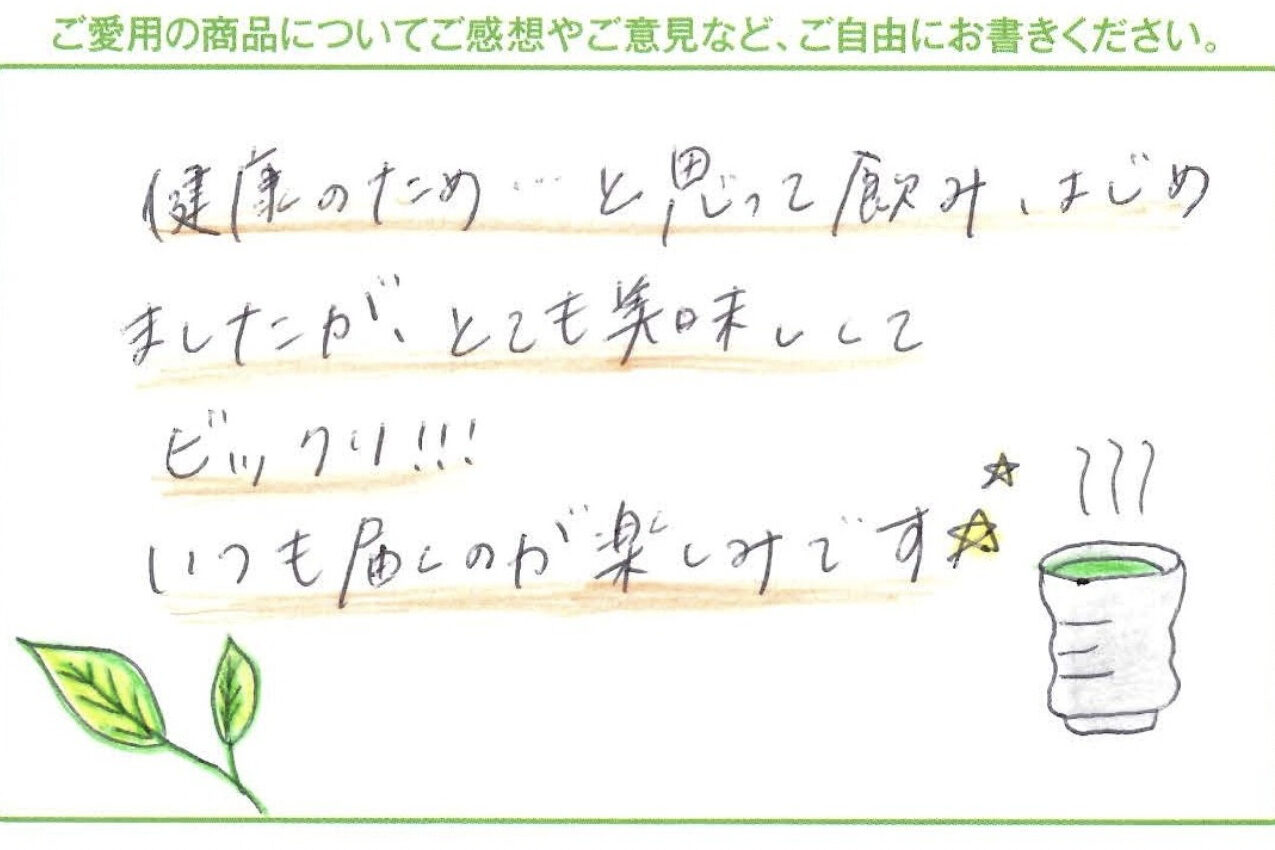 ご愛用の商品についてご感想やご意見など、ご自由にお書きください。
健康のため…と思って飲み、はじめ
ましたが、とても美味しくて
ビックリ!!!
いつも届くのが楽しみです☆